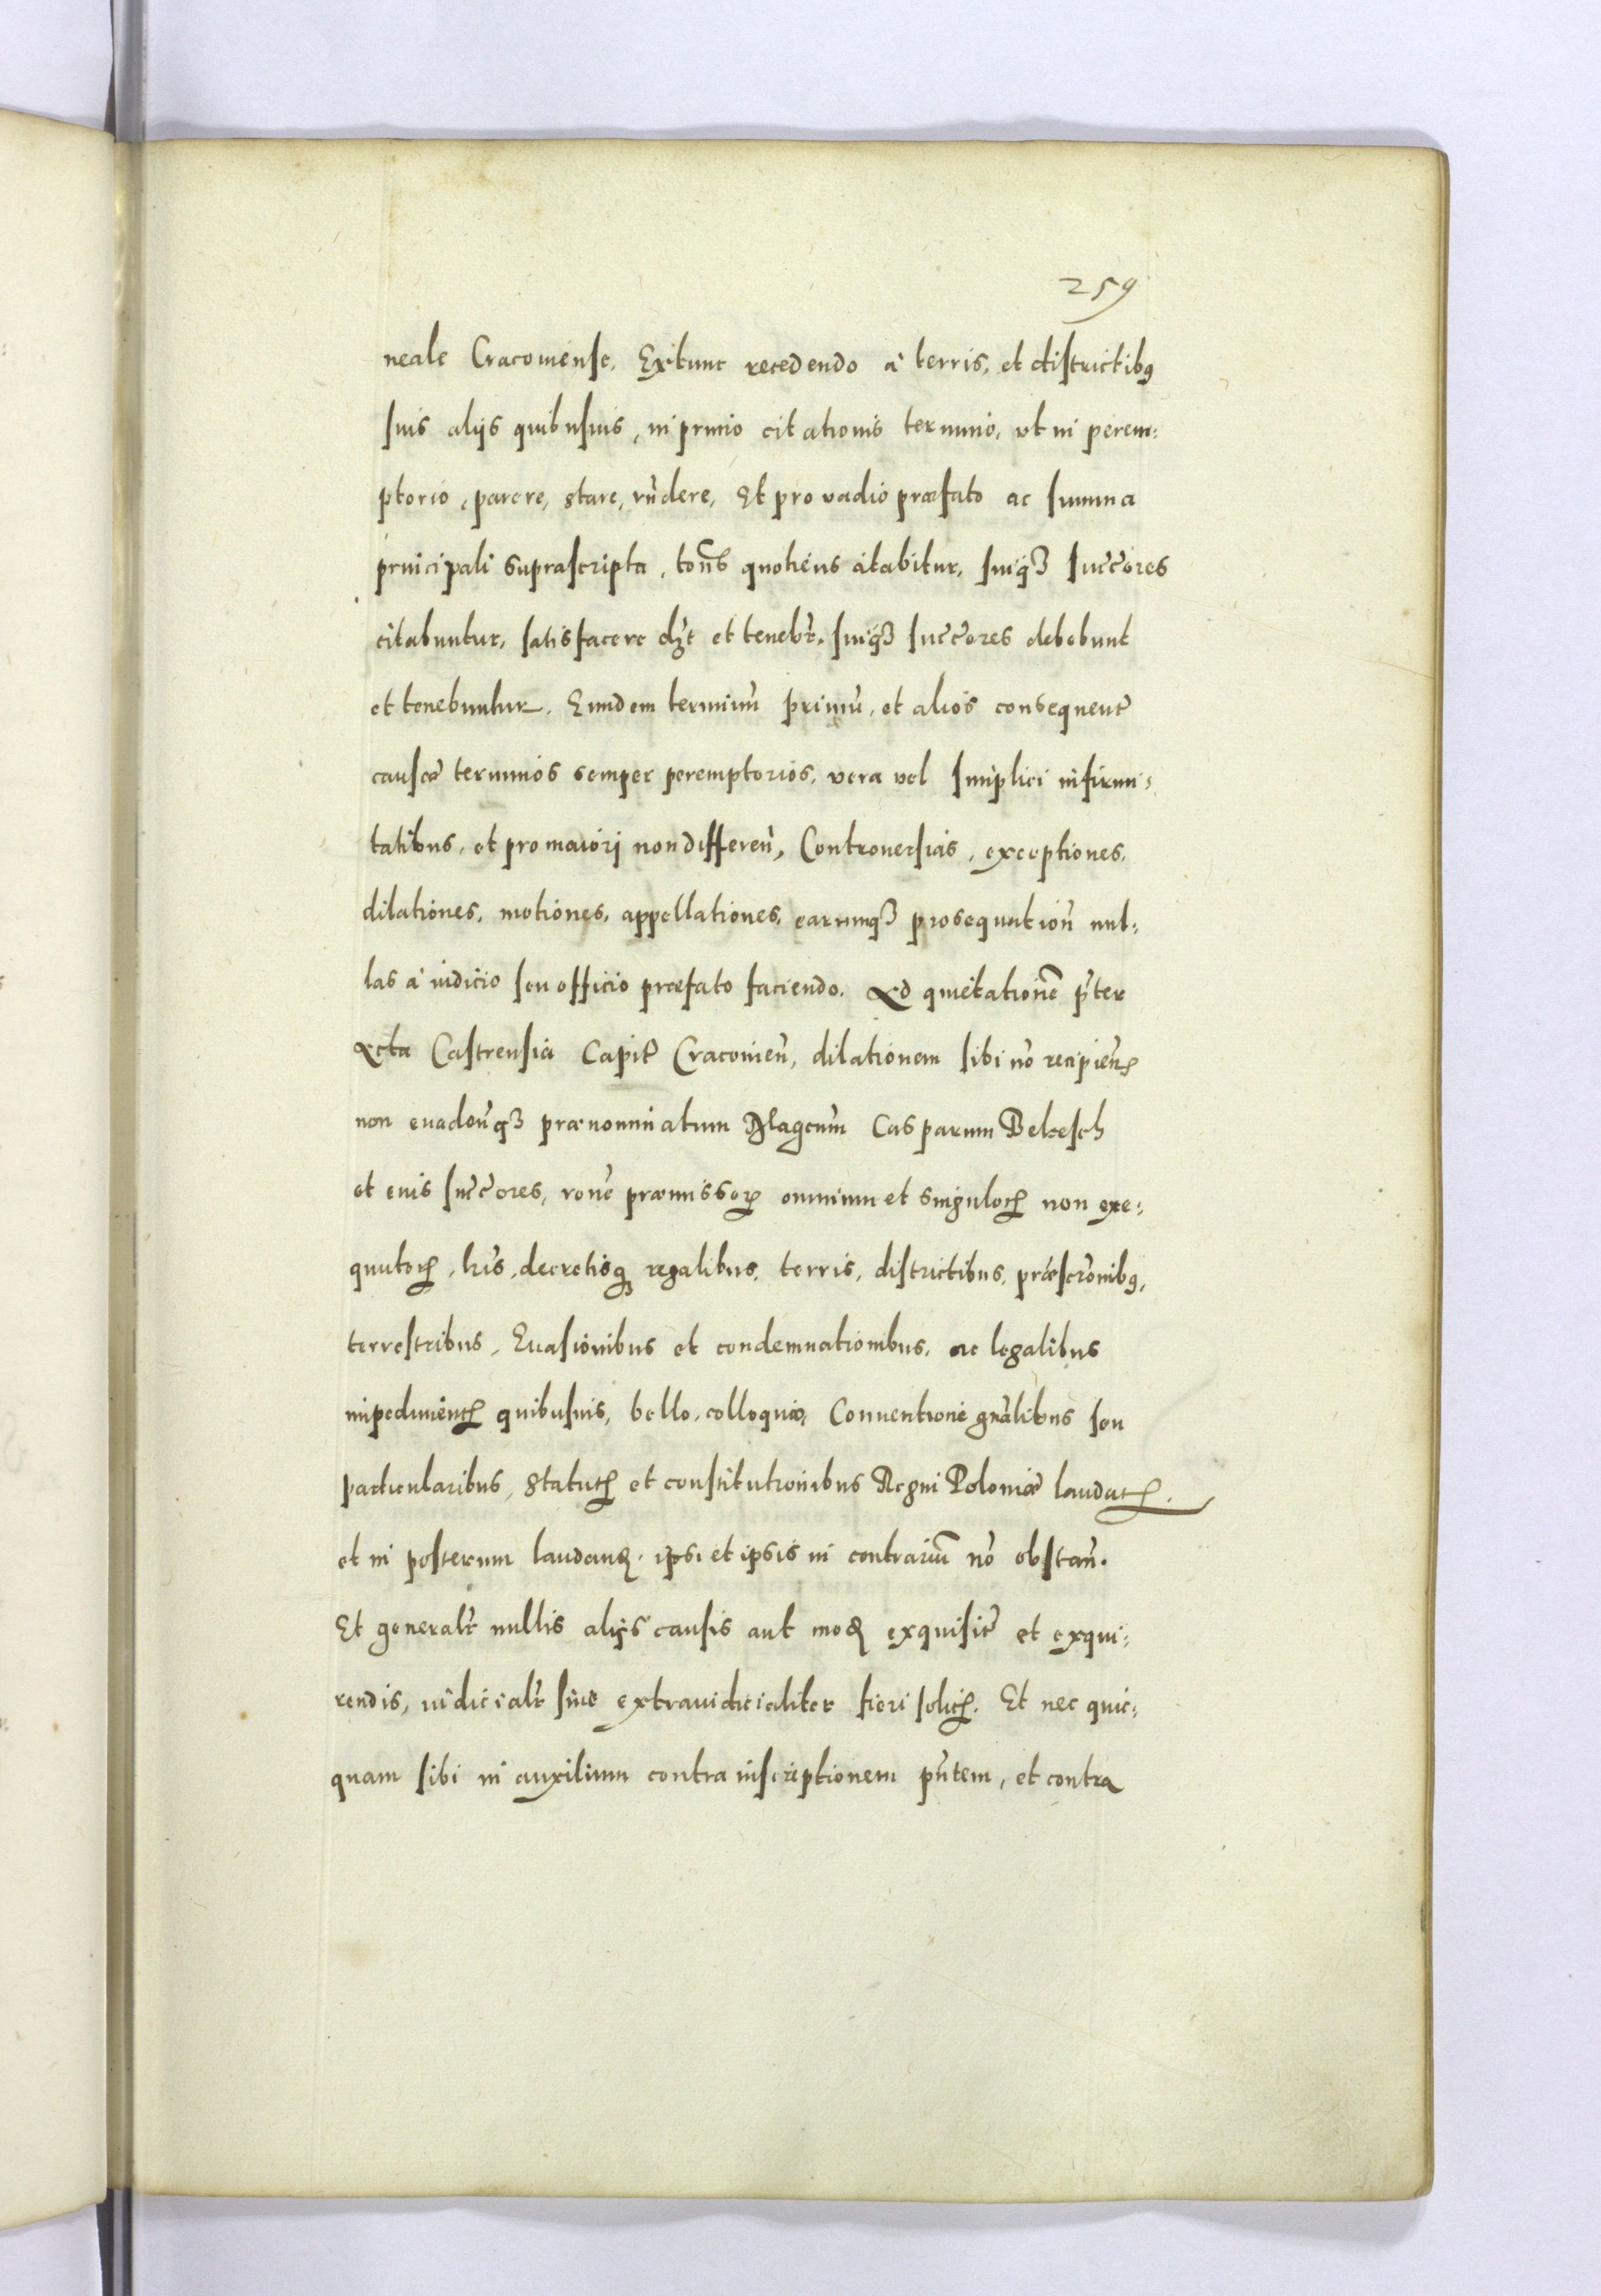 259
neale Cracouiense. Extunc recedendo à terris, et districtibꝰ
suis alijs quibusuis, in primo citationis termino, vt in perem:
ptorio, parere, stare, rñdere, Et pro vadio præfato ac summa
principali suprascripta, totiẽs quotiens citabitur, suiqꝫ succ̃ores
citabuntur, satisfacere dẽbt et tenebr̃. suiqꝫ succ̃ores debebunt
et tenebuntur. Eundem terminũ primũ, et alios consequent̃
causæ terminos semper peremptorios, vera vel simplici infirmi:
tatibus, et pro maiori non differeñ, Controuersias, exceptiones,
dilationes, motiones, appellationes, earumqꝫ prosequutioñ nul:
las à iudicio seu officio præfato faciendo. Ad quietationẽ p̃ter
Acta Castrensia Capit̃ Cracouieñ, dilationem sibi nõ recipieñ
non euadeñqꝫ prænominatum Magcũm Casparum Bekesch
et eius succ̃ores, rone præmissoꝝ omnium et singuloꝝ non exe:
quutoꝝ, lris, decretisqꝫ regalibus, terris, districtibus, præscr̃onibꝰ,
terrestribus, Euasionibus et condemnationibus, ac legalibus
impediment̃ quibusuis, bello, colloquio, Conuentione gñalibus seu
particularibus, Statut̃ et constitutionibus Regni Poloniæ laudat̃.
et in posterum laudanꝭ, ipsi et ipsis in contrariũ nõ obstañ.
Et generalr̃ nullis alijs causis aut modꝭ exquisit̃ et exqui:
rendis, iudicialr̃ siue extraiudicialiter fieri solit̃. Et nec quic:
quam sibi in auxilium contra inscriptionem pñtem, et contra